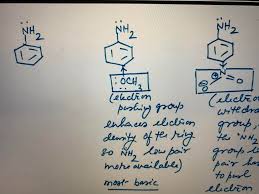 NH2
NH2
NH2
:OCH3
N
O
O
(electron
pushing group
enhaces electron
density of the ring
so NH2 lone pair
more available)
most basic
(electro
withdra
group,
the NH2
group l
pair ha
to push
electron